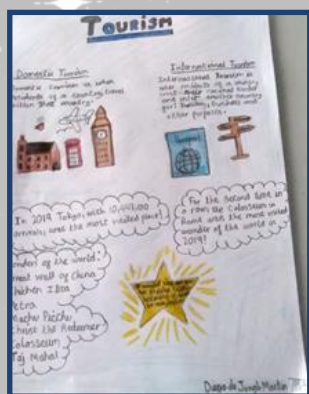 TOURISM
Domestic Tourism
Domestic tourism is when
residents of a country travel
within that country.
International Tourism
International tourism is
when residents of a country
cross national border
and enter another country
for holiday, business and
other purposes.
In 2019 Tokyo, with 10,443,000
arrivals, was the most visited place!
For the second time in
a row, the Colosseum in
Rome won the most visited
wonder of the world in
2019!
wonders of the world:
Great wall of China
Chichen Itza
Petra
Machu Picchu
Christ the Redeemer
Colosseum
Taj Mahal
Diego de Jungh Martin